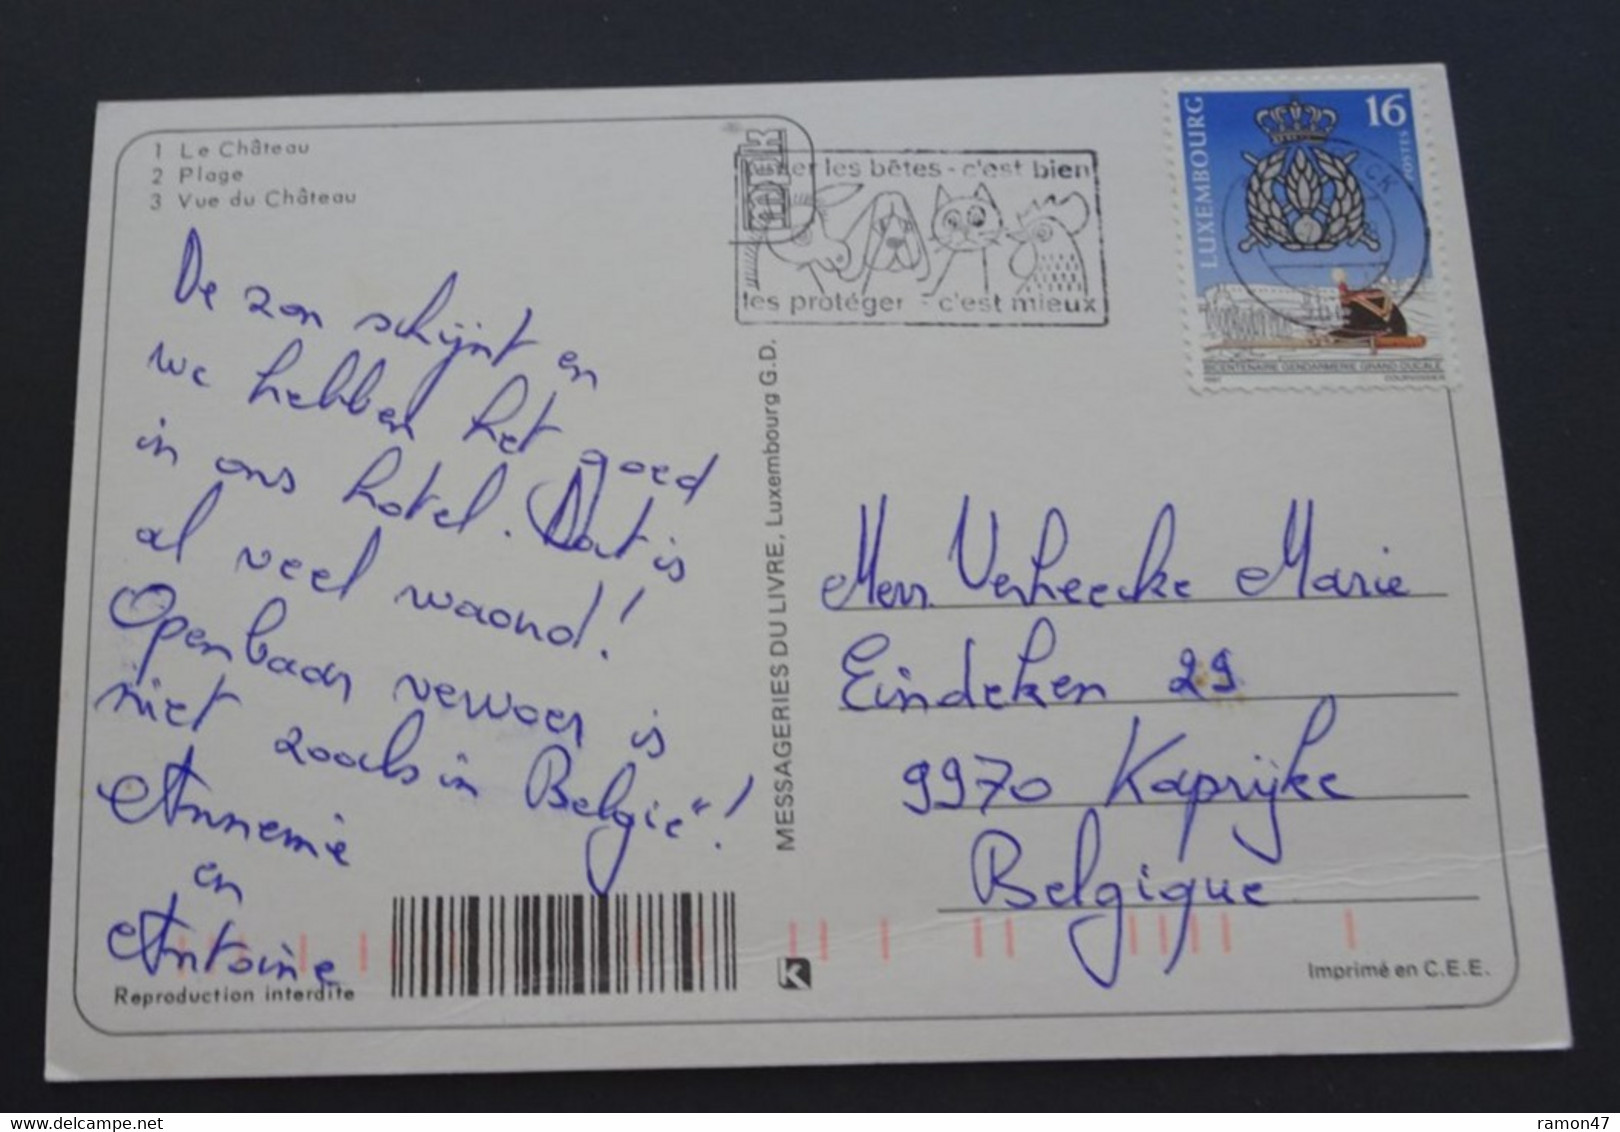 1 Le Château
2 Plage
3 Vue du Château
De zon schijnt en
we hebben het goed
in ons hotel. Dat is
al veel waard!
Openbaar vervoer is
niet zoals in België"!
Annemie
en
Antoine
Reproduction interdite
MESSAGERIES DU LIVRE, Luxembourg G.D.
mdk
les bêtes - c'est bien
les protéger - c'est mieux
LUXEMBOURG
16
POSTES
BICENTENAIRE GENDARMERIE GRAND-DUCALE
COURVOISIER
Mevr. Verheecke Marie
Eindeken 29
9970 Kaprijke
Belgique
K
Imprimé en C.E.E.
ramon47